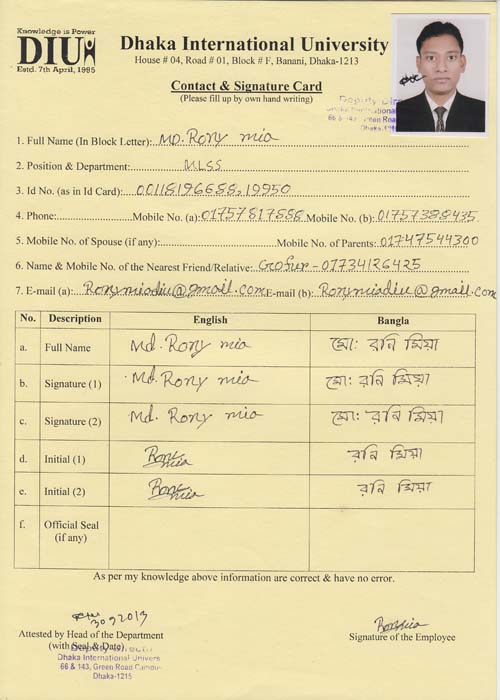 Knowledge is Power
DIU
Estd. 7th April, 1995
Dhaka International University
House # 04, Road # 01, Block # F, Banani, Dhaka-1213
Contact & Signature Card
(Please fill up by own hand writing)
Deputy Dire
Dhaka International
66 & 143, Green Road
Dhaka-1215
1. Full Name (In Block Letter): MD. Rony mia
2. Position & Department: MLSS
3. Id No. (as in Id Card): 00118196688, 19950
4. Phone: Mobile No. (a): 01757817888 Mobile No. (b): 01757388435
5. Mobile No. of Spouse (if any): Mobile No. of Parents: 01747544300
6. Name & Mobile No. of the Nearest Friend/Relative: Gofur - 01734126425
7. E-mail (a): Ronymiadiu@gmail.com E-mail (b): Ronymiadiu@gmail.com
No. Description English Bangla
a. Full Name Md. Rony mia মো: রনি মিয়া
b. Signature (1) Md. Rony mia মো: রনি মিয়া
c. Signature (2) Md. Rony mia মো: রনি মিয়া
d. Initial (1) Rony mia রনি মিয়া
e. Initial (2) Rony mia রনি মিয়া
f. Official Seal
(if any)
As per my knowledge above information are correct & have no error.
Ronymia
Attested by Head of the Department Signature of the Employee
(with Seal & Date)
Dhaka International Univers
66 & 143, Green Road Campu
Dhaka-1215